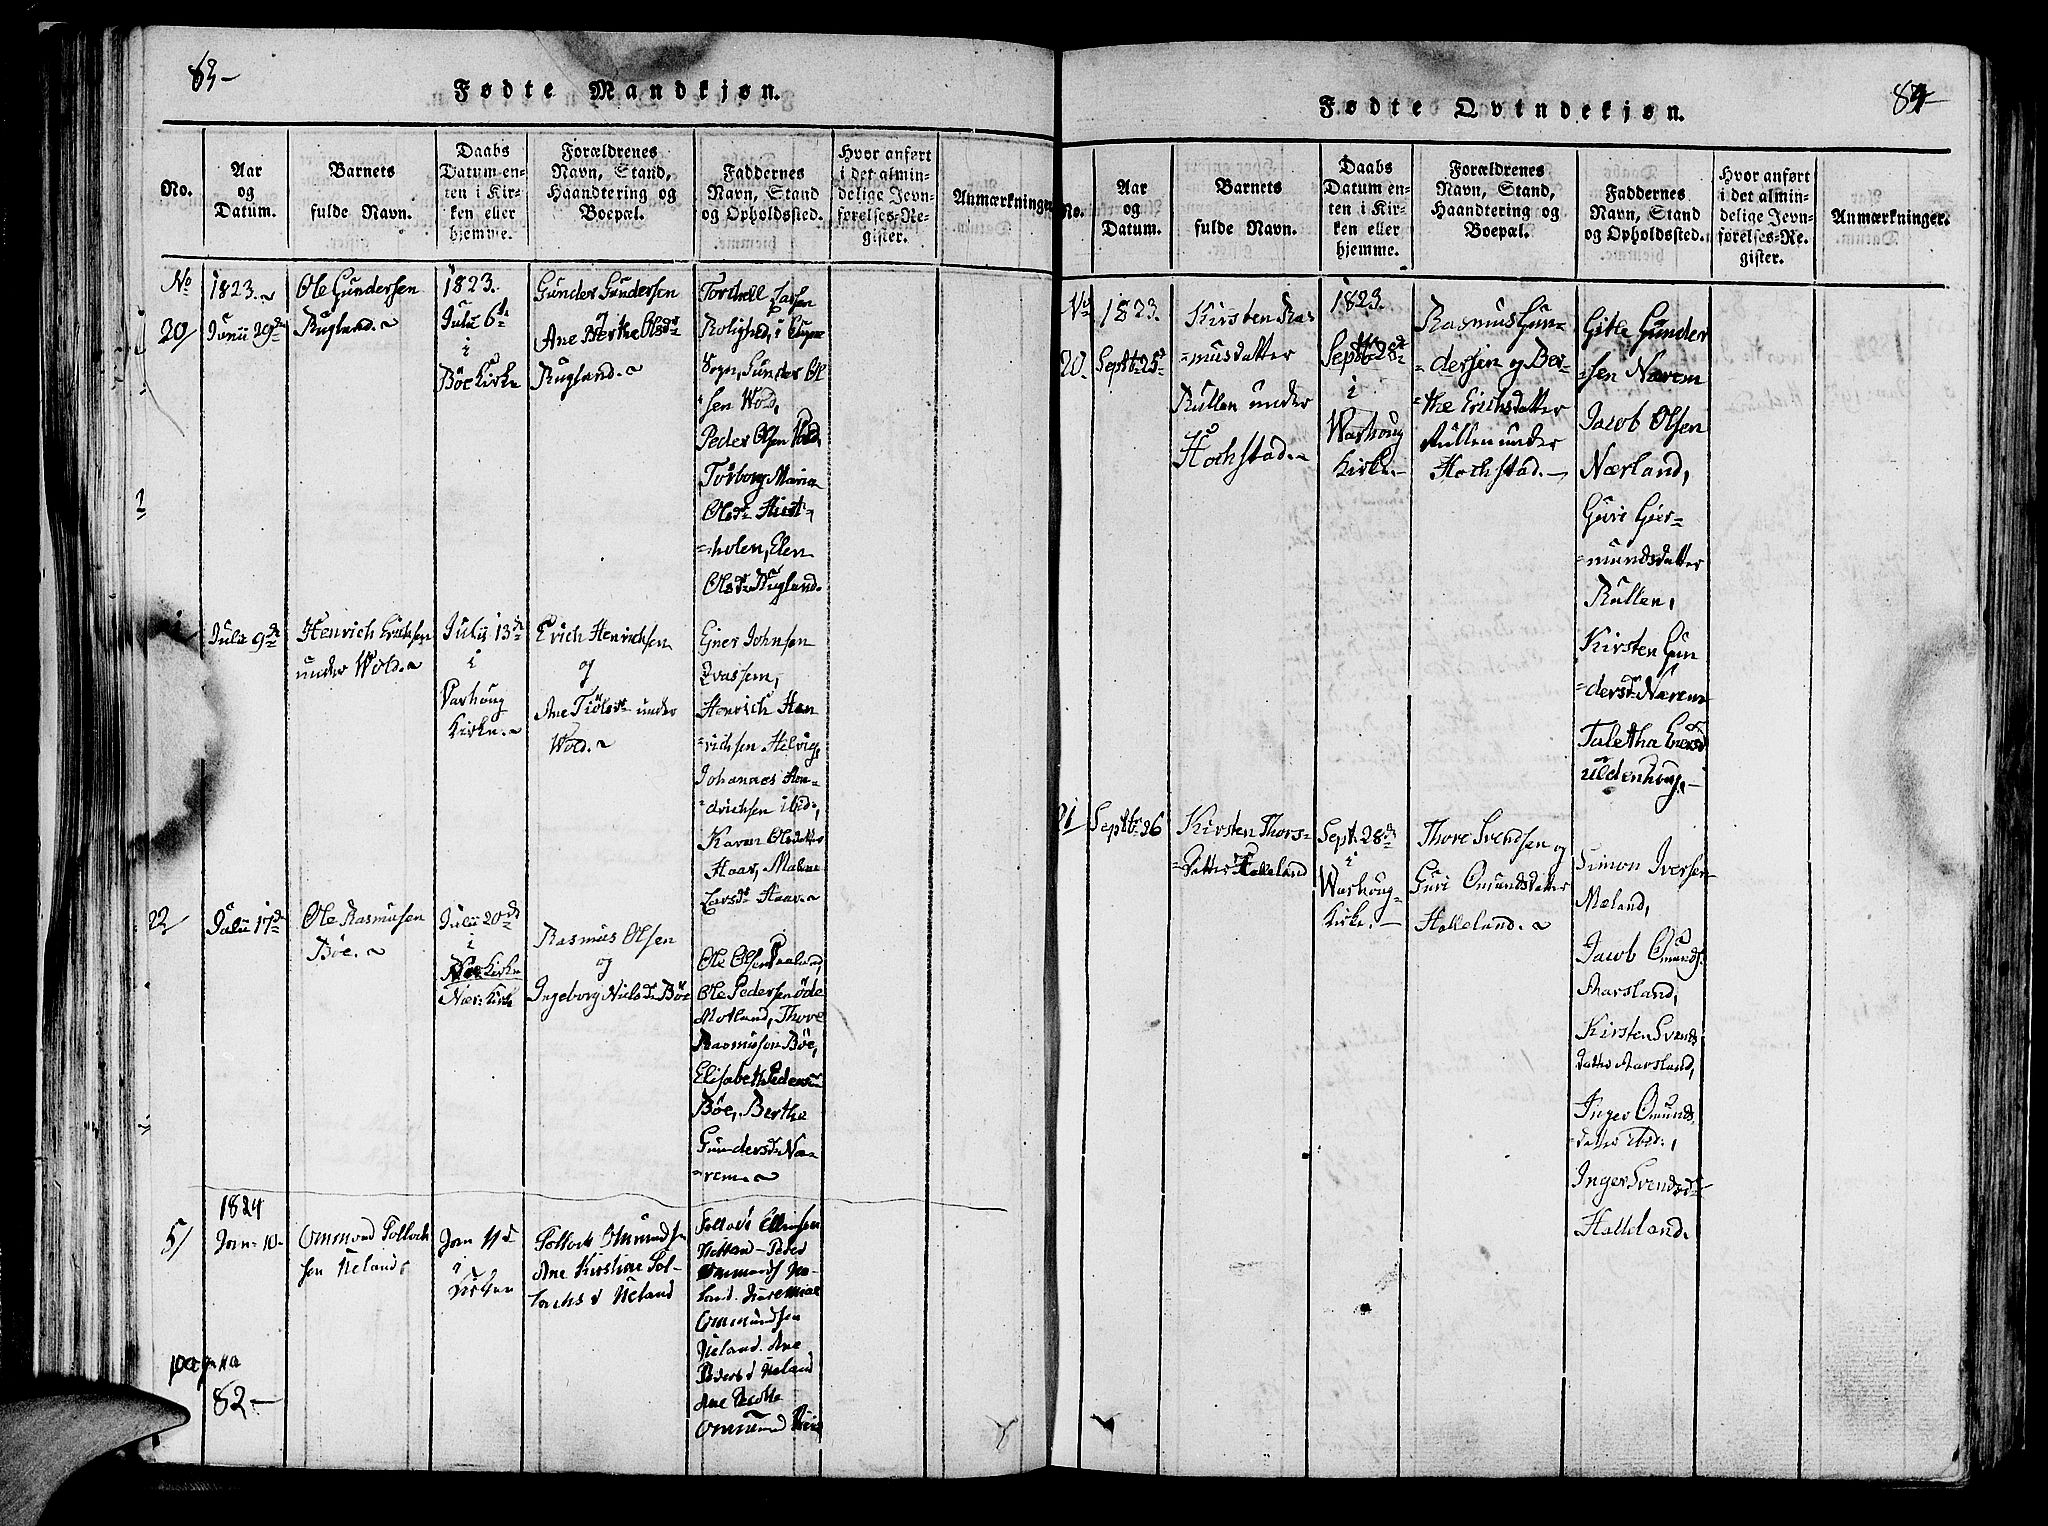 83-
Fødte Mandkjøn.
No.
Aar
og
Datum.
Barnets
fulde Navn.
Daabs
Datum en-
ten i Kir-
ken eller
hjemme.
Forældrenes
Navn, Stand,
Haandtering og
Boepæl.
Faddernes
Navn, Stand
og Opholdssted.
Hvor anført
i det almin-
delige Jevn-
førelses-Re-
gister.
Anmærkninger
No
20/
1823.
Junii 29de
Ole Gundersen
Rugland.
1823.
Julii 6te
i
Böe Kirke
Gunder Gundersen
og
Ane Berthe Olsdr
Rugland.
Torkell Larsen
Rolighed, i
Sogn, Gunder Ol
sen Wold,
Peder Olsen Wold,
Torborg Maria
Olsdr
=holen, Elen
Olsdr Rugland.
Julii 9de
Henrich Erichsen
under Wold.
Julii 13de
i
Varhoug
Kirke.
Erich Henrichsen
og
Ane Tiölsdr under
Wold.
Ejner Johnsen
Qvassem,
Henrich Hen
=richsen Helvig,
Johannes Hen=
=drichsen ibid,
Karen Olsdatter
Haar, Malene
Larsdr Haar.
22/
Julii 17de
Ole Rasmusen
Böe.
Julii 20de
i
Nær: Kirke
Rasmus Olsen
og
Ingeborg Nielsdr Böe
Ole Olsen
Ole Pedersen Öde
Motland, Thore
Rasmusen Böe,
Elisabeth Pedersdr
Böe, Berthe
Gundersdr Næ=
=rem.
1824
5/
Jan: 10
Ommond Tollach
sen Neland
Jan 11
i
Kirken
Tollach Ommundsen
Ane Kirstine Tol-
lachs d Neland
Ellingsen
Neland - Peder
Ommunds Ne-
land. Jeremias
Ommundsen
Neland. Ane
Peders d Neland
Ane
Ommund
pagina
82-
84-
Fødte Qvindekjøn.
No.
Aar
og
Datum.
Barnets
fulde Navn.
Daabs
Datum en-
ten i Kir-
ken eller
hjemme.
Forældrenes
Navn, Stand,
Haandtering og
Boepæl.
Faddernes
Navn, Stand
og Opholdssted.
Hvor anført
i det almin-
delige Jevn-
førelses-Re-
gister.
Anmærkninger.
No
20.
1823.
Septbr 25de
Kirsten Ras
=musdatter
Rullen under
Höchstad.
1823.
Septbr 28de
i
Warhoug
Kirke.
Rasmus Gun=
=dersen og Ber=
=the Erichsdatter
Rullen under
Hochstad.
Gitle Gunder
=sen Nærem
Jacob Olsen
Nærland,
Guri Gier=
=mundsdatter
Rullen,
Kirsten Gun
=dersdr Nærem
Taletha
Uldenhoug.
21
Septbr 26
Kirsten Thors=
=datter Halleland
Sept: 28de
i
Warhoug
Kirke.
Thore Svendsen og
Guri Omundsdatter
Halleland.
Simon Iversen
Mæland,
Jacob Omunds.
Aarsland,
Kirsten Svends
datter Aarsland,
Inger Omunds
datter ibid.,
Inger Svendsdr
Halleland.